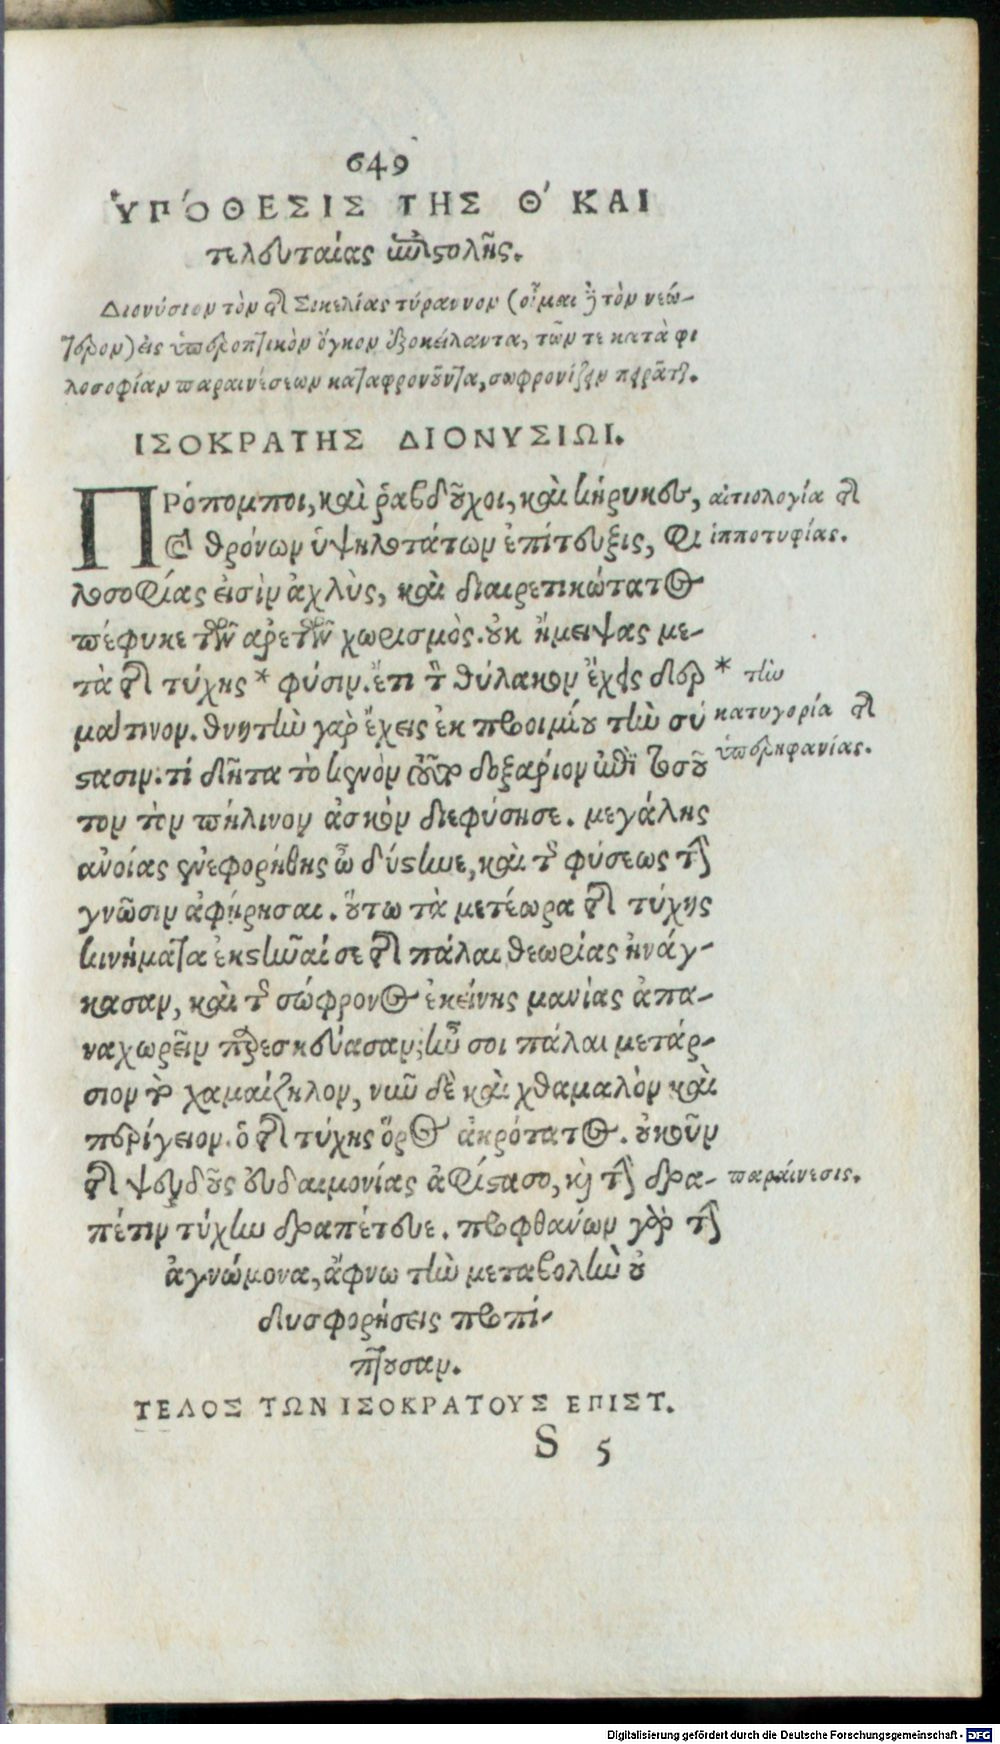 649
ὙΠΌΘΕΣΙΣ ΤΗΣ Θ' ΚΑΙ
τελευταίας ἐπιστολῆς.
Διονύσιον τὸν τῆς Σικελίας τύραννον (οἶμαι δὲ τὸν νεώ-
τερον) εἰς ὑπεροπτικὸν ὄγκον ἐξοκείλαντα, τῶν τε κατὰ φι
λοσοφίαν παραινέσεων καταφρονοῦντα, σωφρονίζειν πειρᾶται.
ΙΣΟΚΡΑΤΗΣ ΔΙΟΝΥΣΙΩΙ.
ΠΡόπομποι, καὶ ῥαβδοῦχοι, καὶ κήρυκες, αἰτιολογία τῆς
καὶ θρόνων ὑψηλοτάτων ἐπίτευξις, φι ἱπποτυφίας.
λοσοφίας εἰσὶν ἀχλὺς, καὶ διαιρετικώτατος
πέφυκε τῶν ἀρετῶν χωρισμὸς. οὐκ ἤμειψας με-
τὰ τῆς τύχης * φύσιν. ἔτι τὸ θύλακον ἔχεις δερ * τὴν
μάτινον. θνητὴν γὰρ ἔχεις ἐκ προοιμίου τὴν σύ κατηγορία τῆς
στασιν. τί δῆτα τὸ κενὸν δοξάριον ἐπὶ τοσοῦ ὑπερηφανίας.
τον τὸν πήλινον ἀσκὸν διεφύσησε. μεγάλης
ἀνοίας ἐνεφορήθης ὦ δύστηνε, καὶ τῆς φύσεως τὴν
γνῶσιν ἀφῄρησαι. οὕτω τὰ μετέωρα τῆς τύχης
κινήματα ἐκστῆναί σε τῆς πάλαι θεωρίας ἠνάγ-
κασαν, καὶ τῆς σώφρονος ἐκείνης μανίας ἀπα-
ναχωρεῖν παρεσκεύασαν; ἦν σοι πάλαι μετάρ-
σιον τὸ χαμαίζηλον, νῦν δὲ καὶ χθαμαλὸν καὶ
περίγειον. ὁ τῆς τύχης ὅρος ἀκρότατος. οὐκοῦν
τῆς ψευδοῦς εὐδαιμονίας ἀφίστασο, καὶ τὴν δρα- παραίνεσις.
πέτιν τύχην δραπέτευε. προφθάνων γὰρ τὴν
ἀγνώμονα, ἄφνω τὴν μεταβολὴν οὐ
δυσφορήσεις προπί-
πτουσαν.
ΤΕΛΟΣ ΤΩΝ ΙΣΟΚΡΑΤΟΥΣ ΕΠΙΣΤ.
S 5
Digitalisierung gefördert durch die Deutsche Forschungsgemeinschaft - DFG